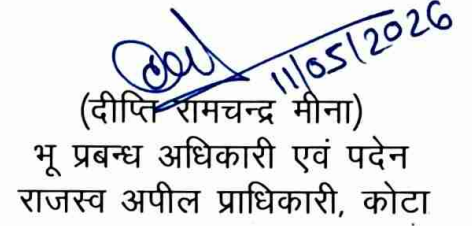 11/05/2026
(दीप्ति रामचन्द्र मीना)
भू प्रबन्ध अधिकारी एवं पदेन
राजस्व अपील प्राधिकारी, कोटा